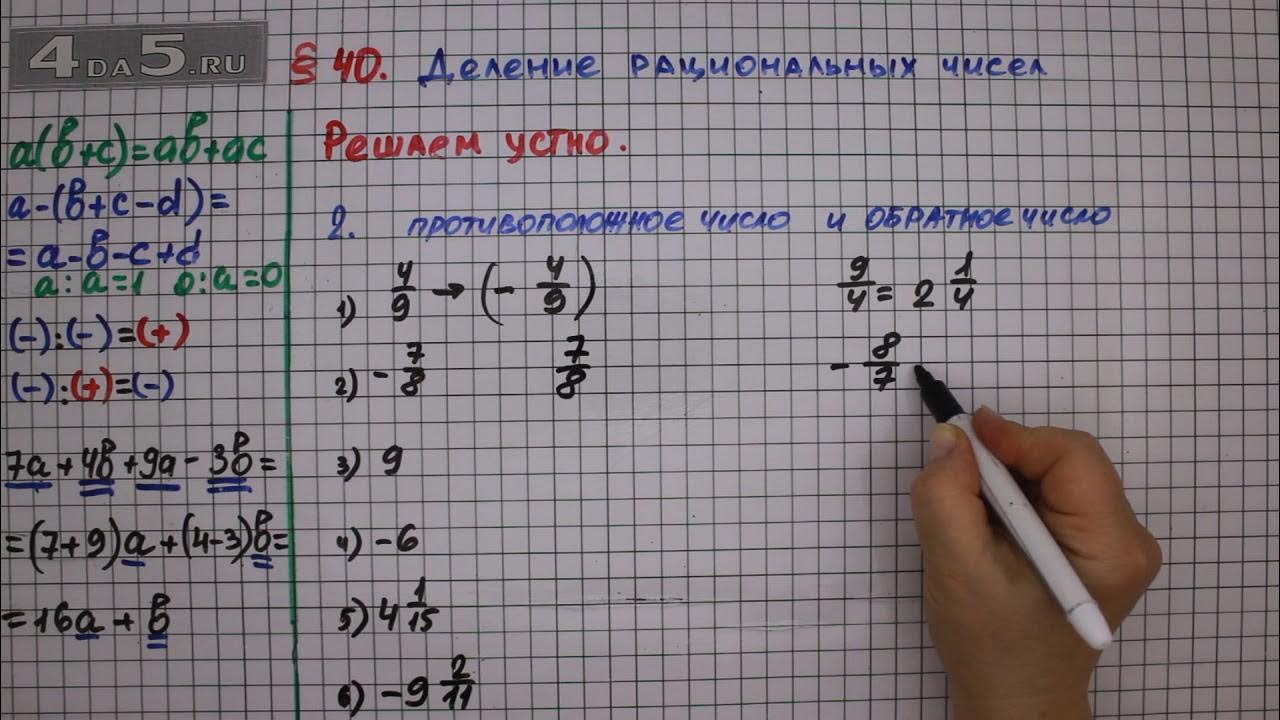 4DA5.RU
§ 40. Деление рациональных чисел
a(b+c)=ab+ac
a-(b+c-d)=
=a-b-c+d
a:a=1 0:a=0
(-):(-)=(+)
(-):(+)=(-)
7a+4b+9a-3b=
=(7+9)a+(4-3)b=
=16a+b
Решаем устно.
2. противоположное число и обратное число
1) 4/9 → (- 4/9) 9/4 = 2 1/4
2) - 7/8 7/8 - 8/7
3) 9
4) -6
5) 4 1/15
6) -9 2/11